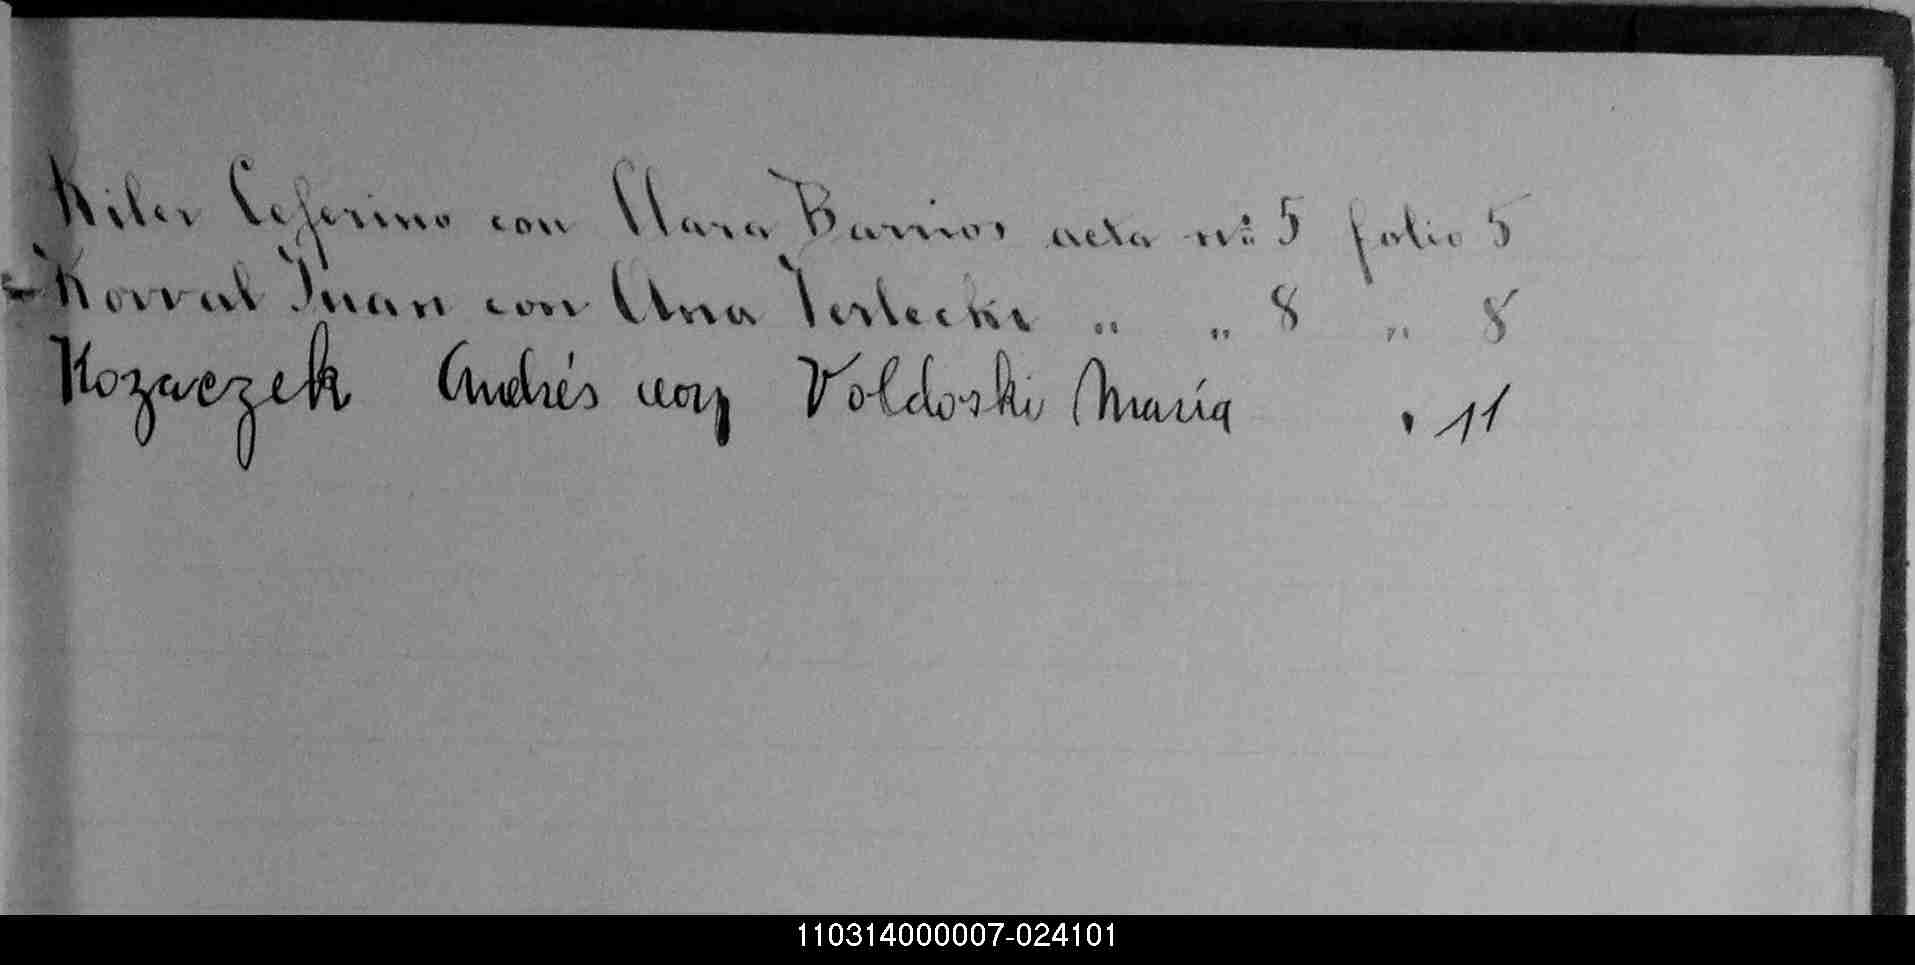 Kiler Ceferino con Clara Barrios acta nº 5 folio 5
Korval Juan con Ana Terlecki " " 8 " 8
Kozaczek Andrés con Voldoski María " 11
110314000007-024101